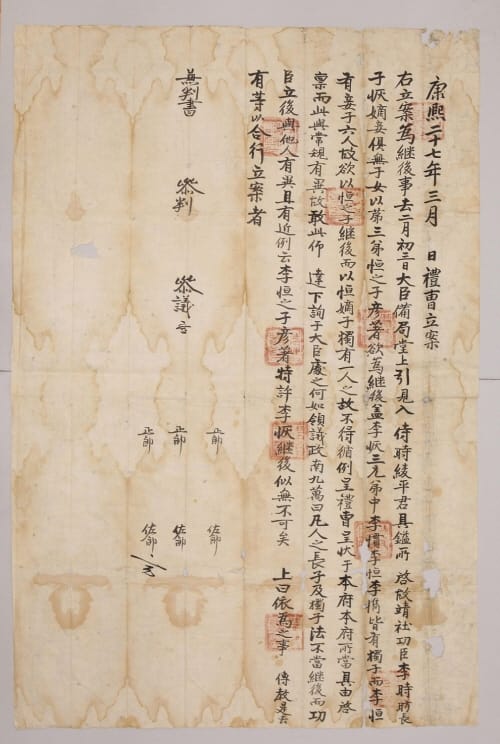 康熙二十七年三月 日禮曺立案
右立案爲繼後事去二月初三日大臣備局堂上引見入 侍時綾平君具鎰所 啓故靖社功臣李時昉長
子恢嫡妾俱無子女以第三弟恒之子彦著欲爲繼後盖李恢三兄弟中李慣李恒李㩦皆有獨子而李恒
有妾子六人故欲以恒之子継後而以恒嫡子獨有一人之故不得循例呈禮曺呈狀于本府本府所當具由啓
禀而此與常規有異故敢此仰 達下詢于大臣處之何如領議政南九萬曰凡人之長子及獨子法不當継後而功
臣立後與他人有異且有近例云李恒之子彦著特許李恢継後似無不可矣 上曰依爲之事 傳敎是去
有等以合行立案者
兼判書
叅判
叅議
正郎
正郎
正郎
佐郎
佐郎
佐郎